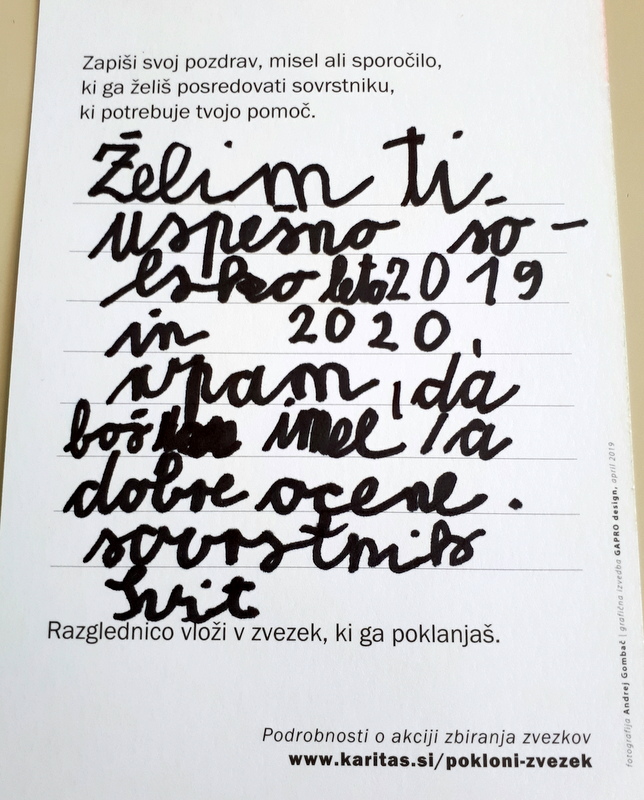 Zapiši svoj pozdrav, misel ali sporočilo,
ki ga želiš posredovati sovrstniku,
ki potrebuje tvojo pomoč.
Želim ti
uspešno šo-
lsko leto 2019
in 2020,
upam, da
boš imel/a
dobre ocene.
sovrstnik
Svit
Razglednico vloži v zvezek, ki ga poklanjaš.
Podrobnosti o akciji zbiranja zvezkov
www.karitas.si/pokloni-zvezek
fotografija Andrej Gombač | grafična izvedba GAPRO design, april 2019